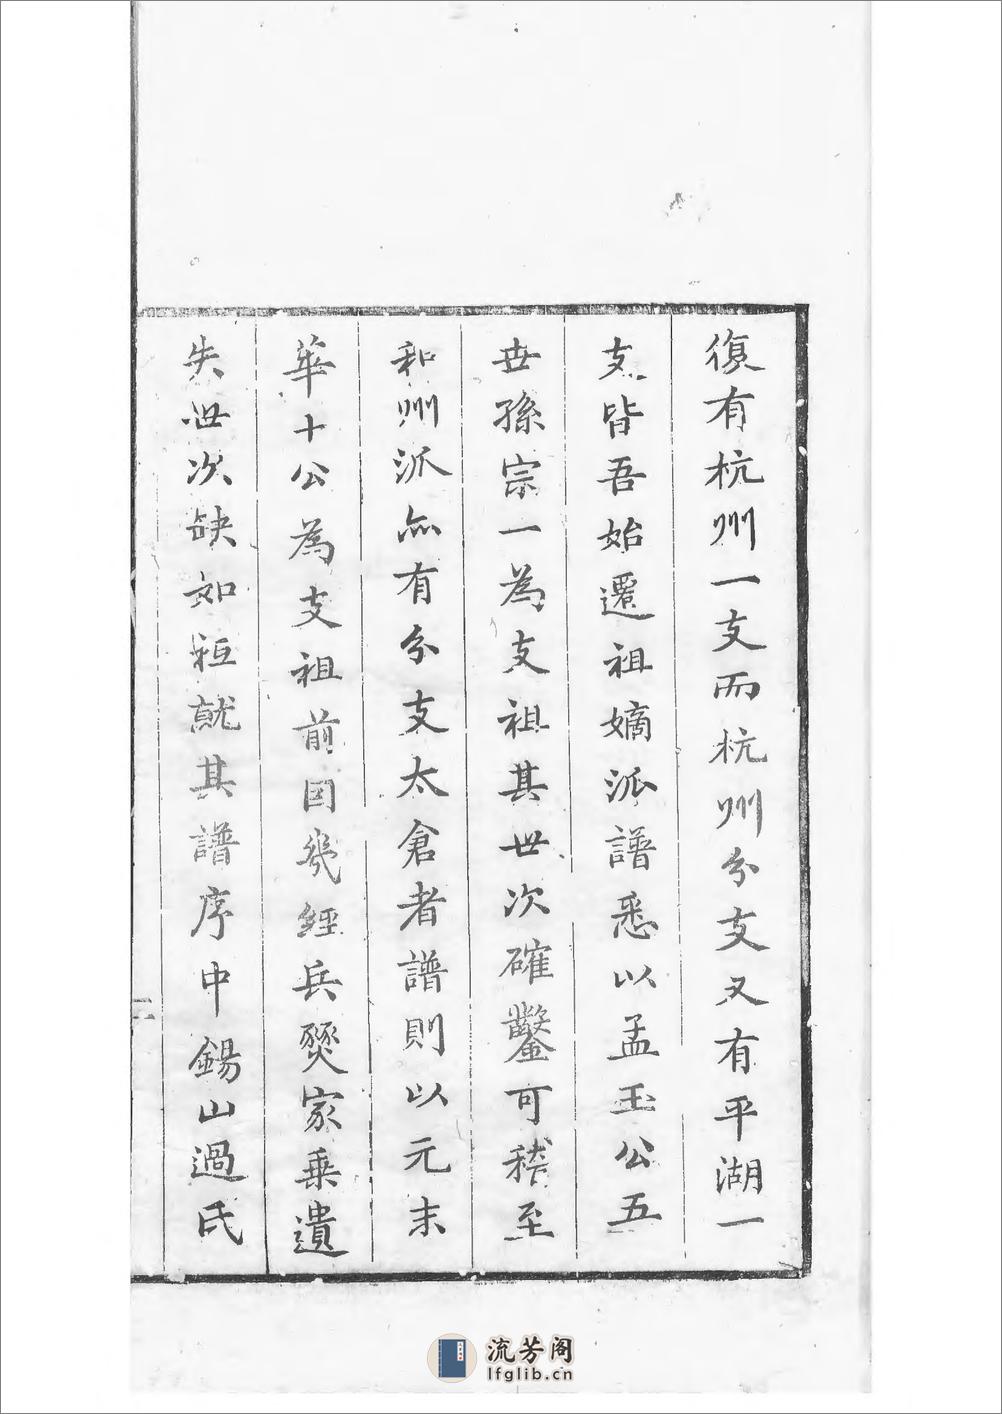 復有杭州一支而杭州分支又有平湖一
支皆吾始遷祖嫡派譜悉以孟玉公五
世孫宗一為支祖其世次確鑿可稽至
和州派亦有分支太倉者譜則以元末
華十公為支祖前因幾經兵燹家乗遺
失世次缺如秪就其譜序中錫山過氏
二
流芳阁
lfglib.cn